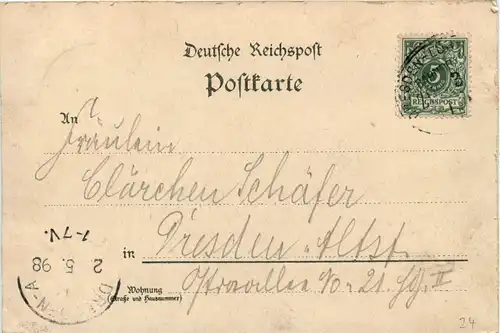 Deutsche Reichspost
Postkarte
5
REICHSPOST
An
Fräulein
Clärchen Schäfer
in Dresden-Altst.
Wohnung
(Straße und Hausnummer)
Ostraallee No. 21. II
2 5. 98
1-7V.
24